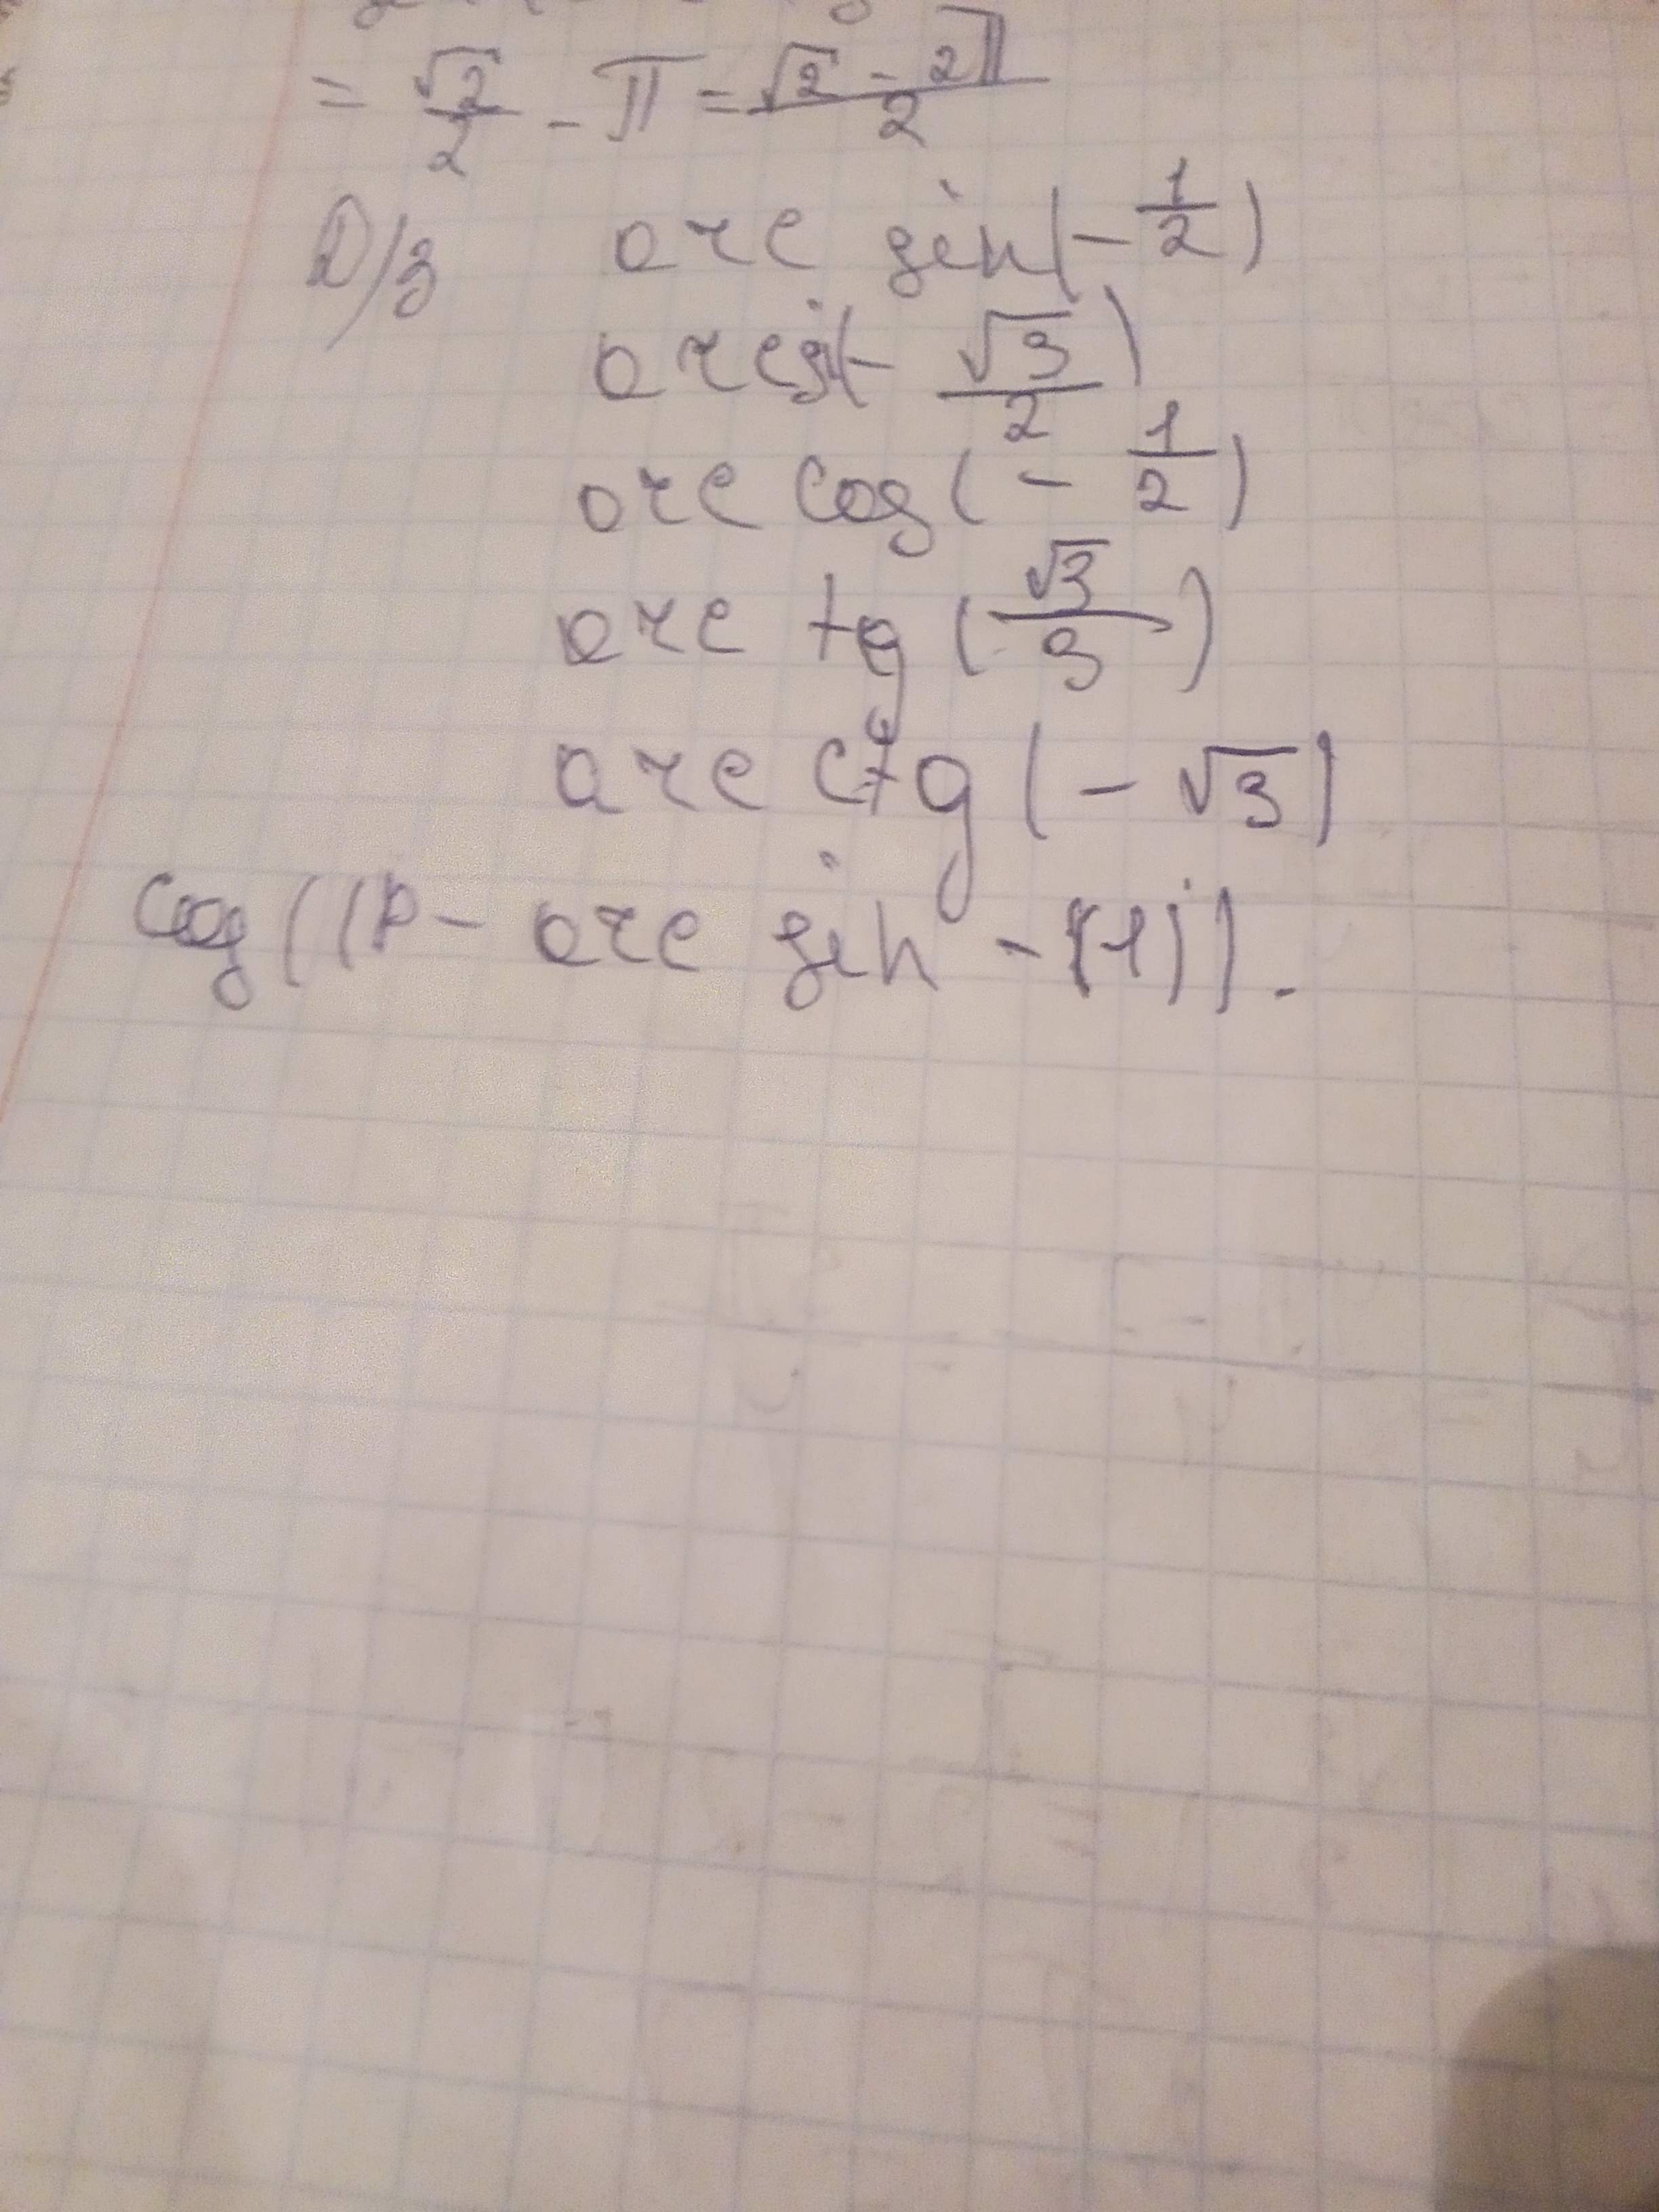 = √2/2 - π = √2 - 2π/2
D/з arc sin(-1/2)
arcsi(- √3/2)
arc cos(- 1/2)
arc tg (√3/3)
arc ctg (- √3)
cos((π - arc sin - (1)).